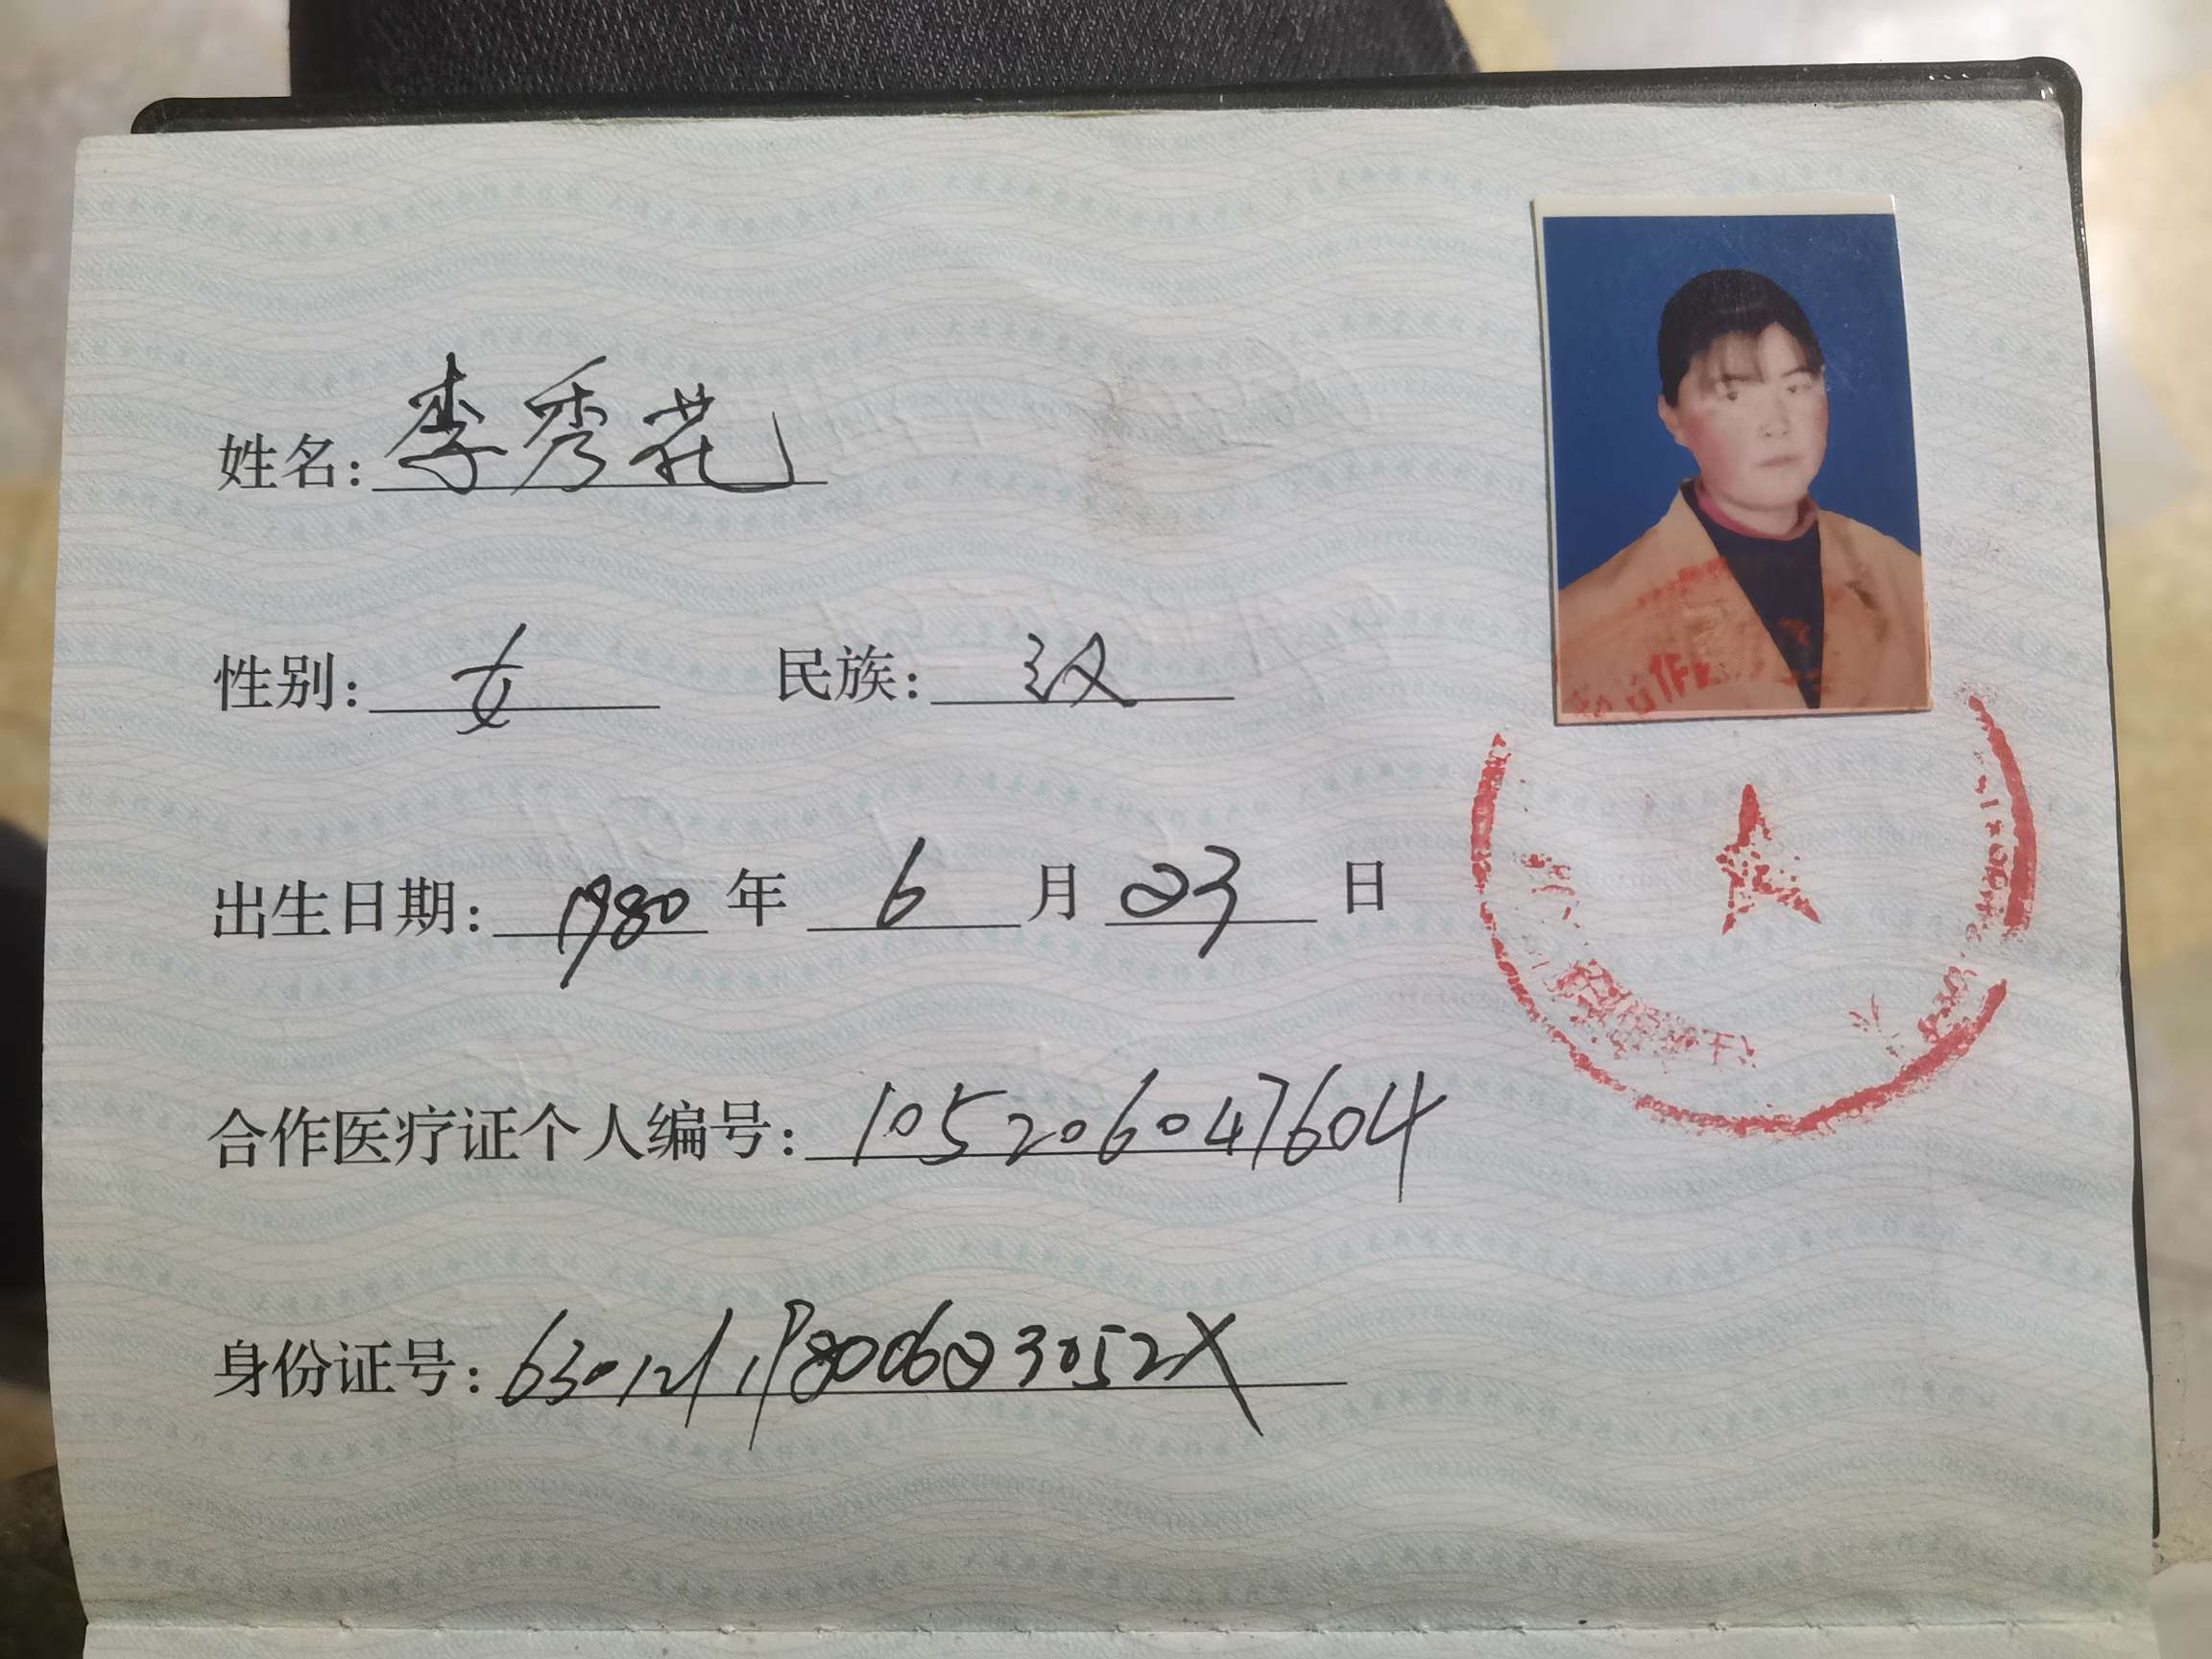 姓名: 李秀花
性别: 女 民族: 汉
出生日期: 1980 年 6 月 23 日
合作医疗证个人编号: 105206047604
身份证号: 63012119800623052X